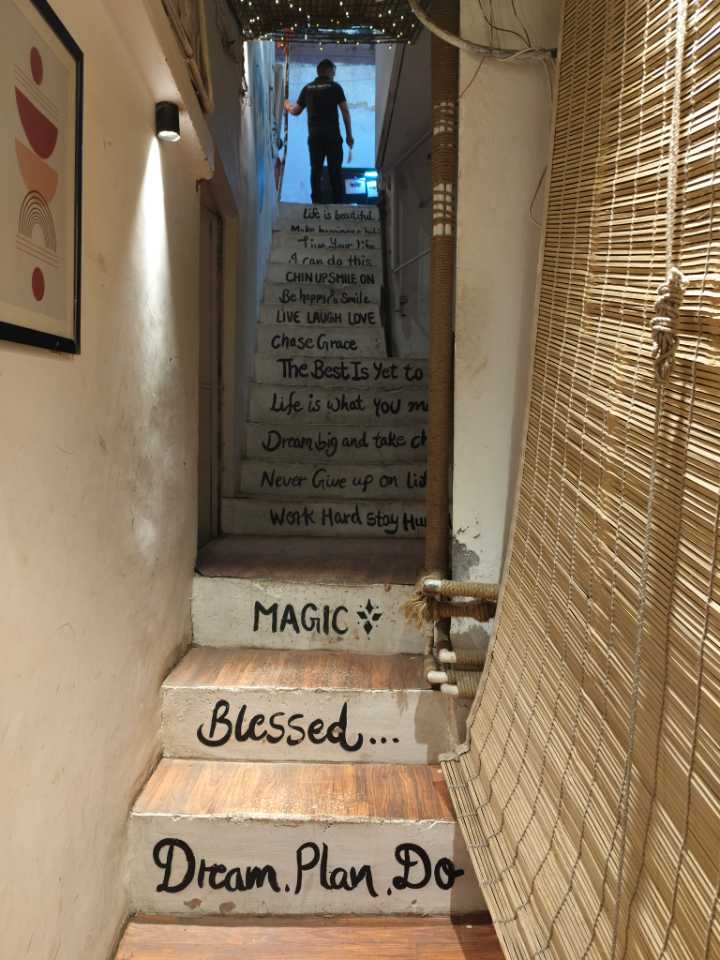 Life is beautiful
Live Your life
I can do this
CHIN UP SMILE ON
Be happy & Smile
LIVE LAUGH LOVE
Chase Grace
The Best Is Yet to
Life is what you
Dream big and take
Never Give up on
Work Hard Stay
MAGIC
Blessed...
Dream. Plan. Do